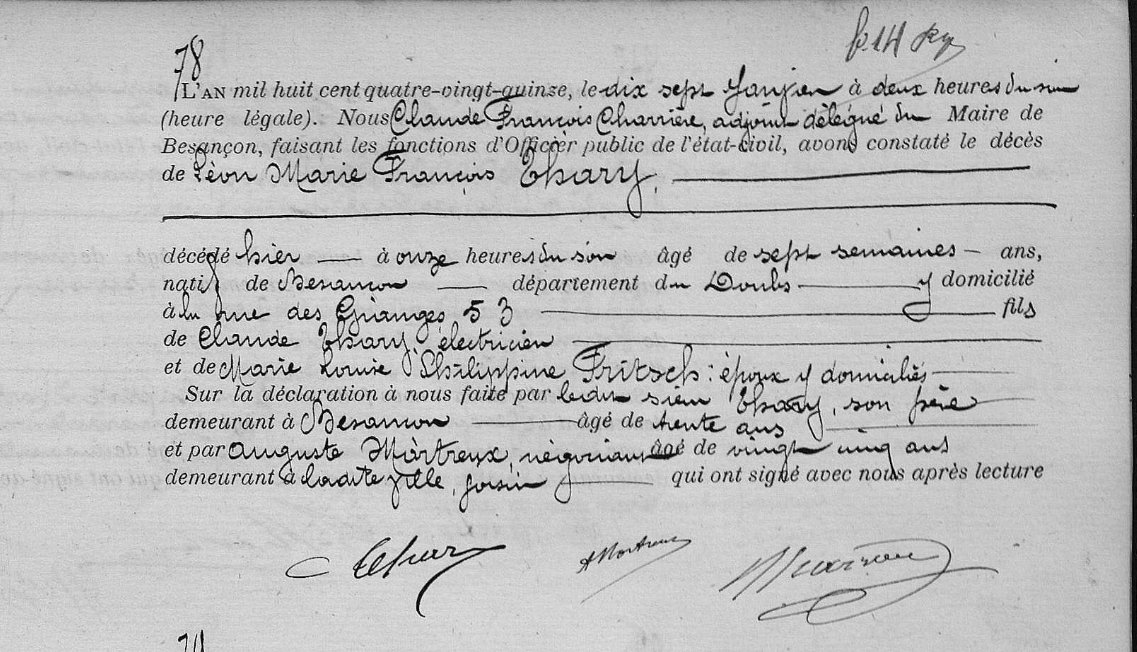 78
L'AN mil huit cent quatre-vingt-quinze, le dix sept Janvier à deux heures du soir
(heure légale). Nous Claude François Charrière, adjoint délégué du Maire de
Besançon, faisant les fonctions d'Officier public de l'état-civil, avons constaté le décès
de Léon Marie François Thary,
décédé hier à onze heures du soir âgé de sept semaines ans,
natif de Besançon département du Doubs y domicilié
à la rue des Granges 53 fils
de Claude Thary électricien
et de Marie Louise Philippine Fritsch : époux y domiciliés
Sur la déclaration à nous faite par ledit sieur Thary, son père
demeurant à Besançon âgé de trente ans
et par Auguste Mortreux, négociant âgé de vingt cinq ans
demeurant à ladite ville, voisin qui ont signé avec nous après lecture
Thary
AMortreux